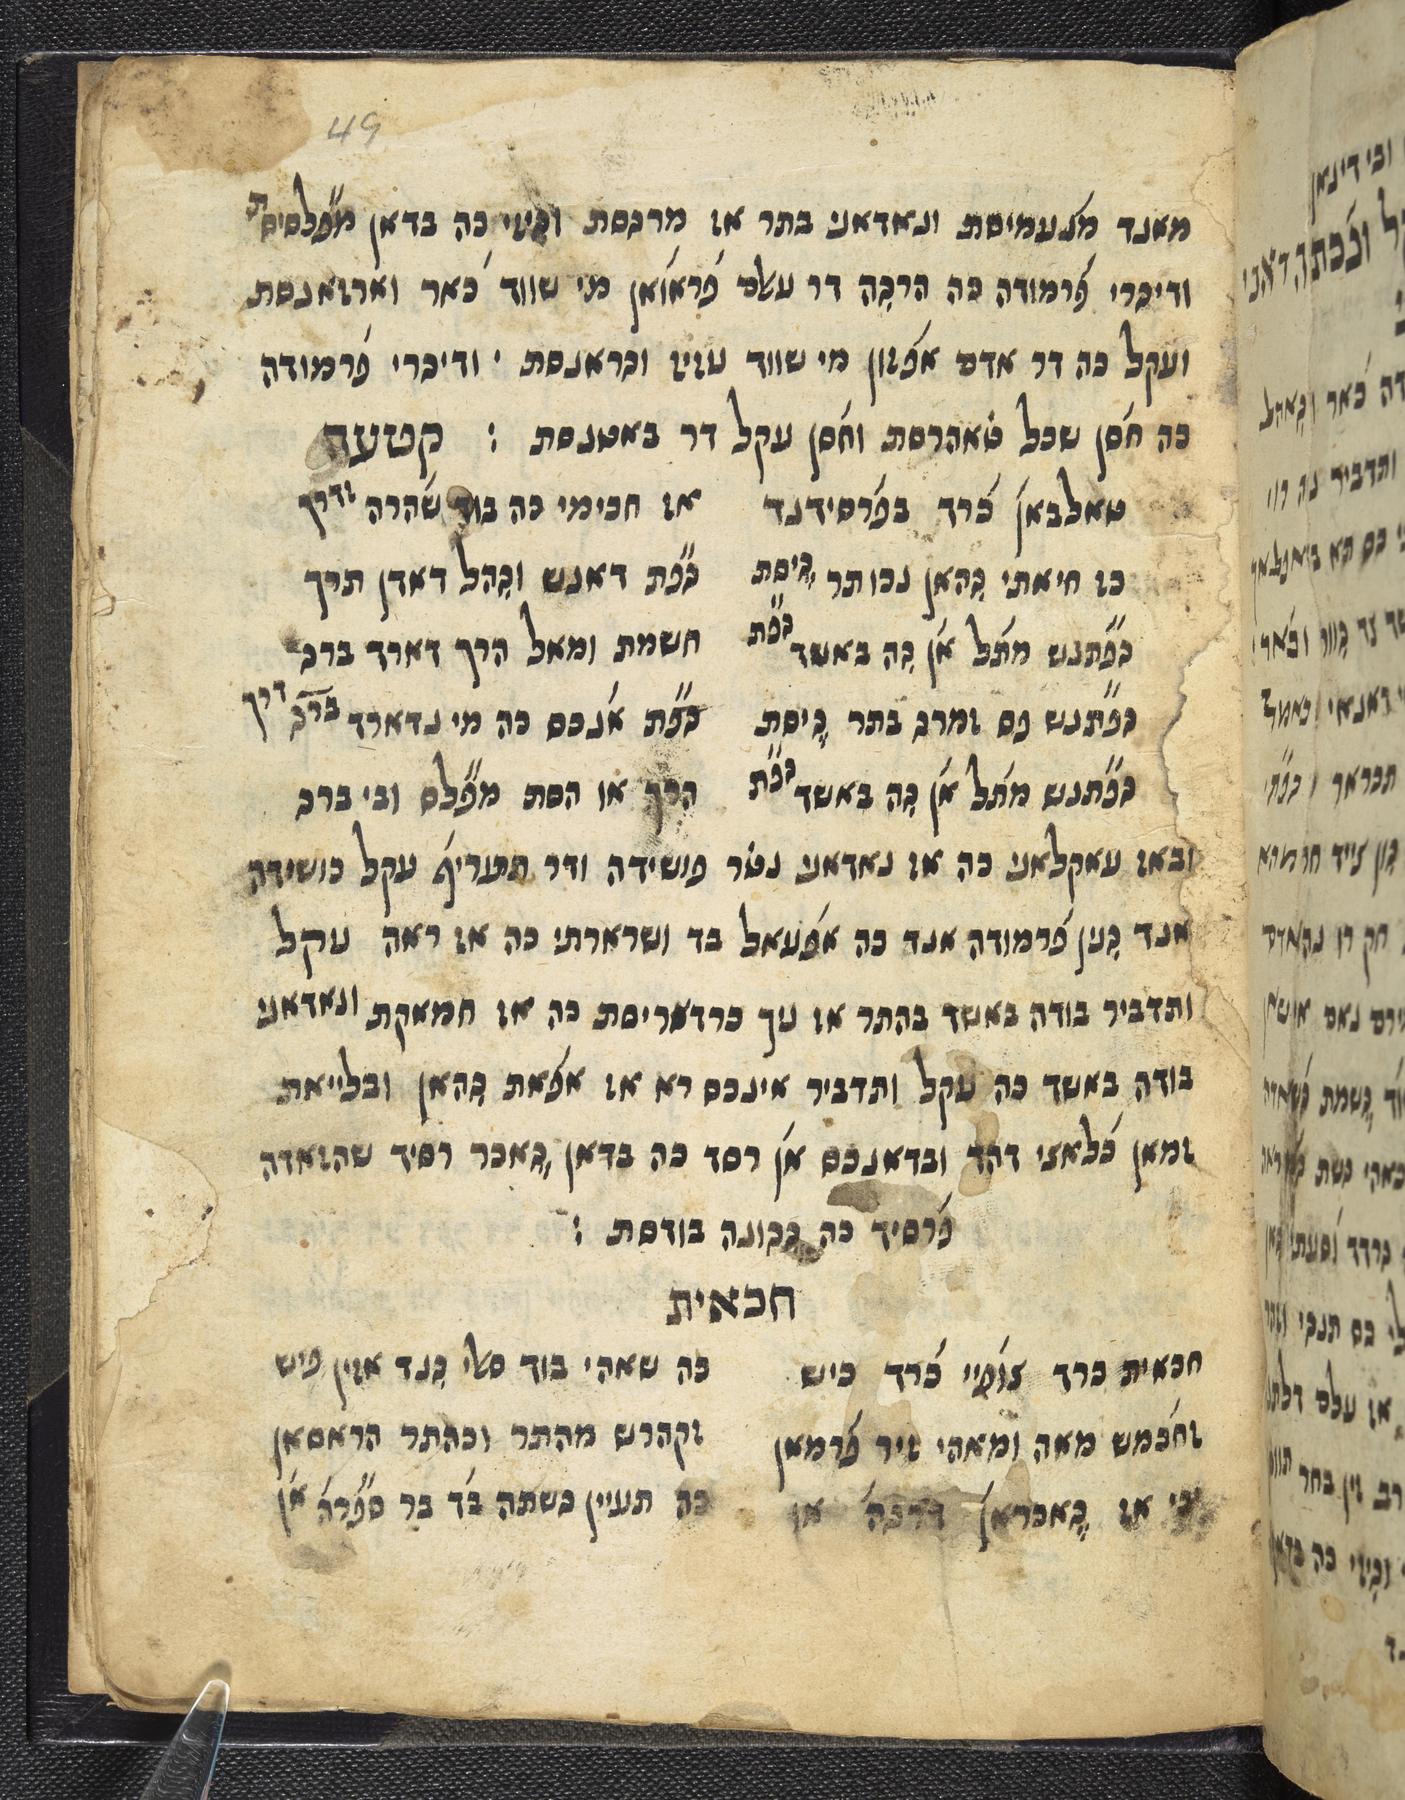 49
מאנד מנעמיסת ונאדאני בתר אז מרגסת וכיזי כה בדאן מפלסיסת
ודיכרי פרמודה כה הרכה דר עאלם פראואן מי שווד כאר וארזאנסת
ועקל כה דר אדם אפזון מי שווד עזיז וגראנסת ׳ ודיכרי פרמודה
כה חסן שכל טאהרסת וחסן עקל דר באטנסת : קטעה
טאלבאן כרד בפרסידנד
אז חכימי כה בוד שהרה ודרך
כז חיאתי גהאן נכותר גיסת
גפת דאנש וגהל דאדן תרך
גפתנש מתל אן גה באשד גפת
חשמת ומאל הרך דארד ברג
גפתנש פס זמרג בתר גיסת
גפת אנכס כה מי נדארד ברג דרך
גפתנש מתל אן גה באשד גפת
הרך או הסת מפלס ובי ברג
ובאז עאקלאני כה אז נאדאני נטר פושידה ודר תעריף עקל כושידה
אנד גנין פרמודה אנד כה אפעאל בד ושרארתי כה אז ראה עקל
ותדביר בודה באשד בהתר אז נך כרדאריסת כה אז חמאקת ונאדאני
בודה באשד כה עקל ותדביר אינכס רא אז אפאת גהאן ובלייאת
זמאן כלאצי דהד ובדאנכס אן רסד כה בדאן גאכר רסיד שהזאדה
פרסיד כה גגונה בודסת :
חכאית
חכאית כרד צופיי כרד כיש
כה שאהי בוד סאלי גנד אזין פיש
זחכמש מאה ומאהי זיר פרמאן
זקהרש מהתר וכהתר הראסאן
יכי אז גאכראן דרגה אן
כה תעיין גשתה בד בר ספרה אן